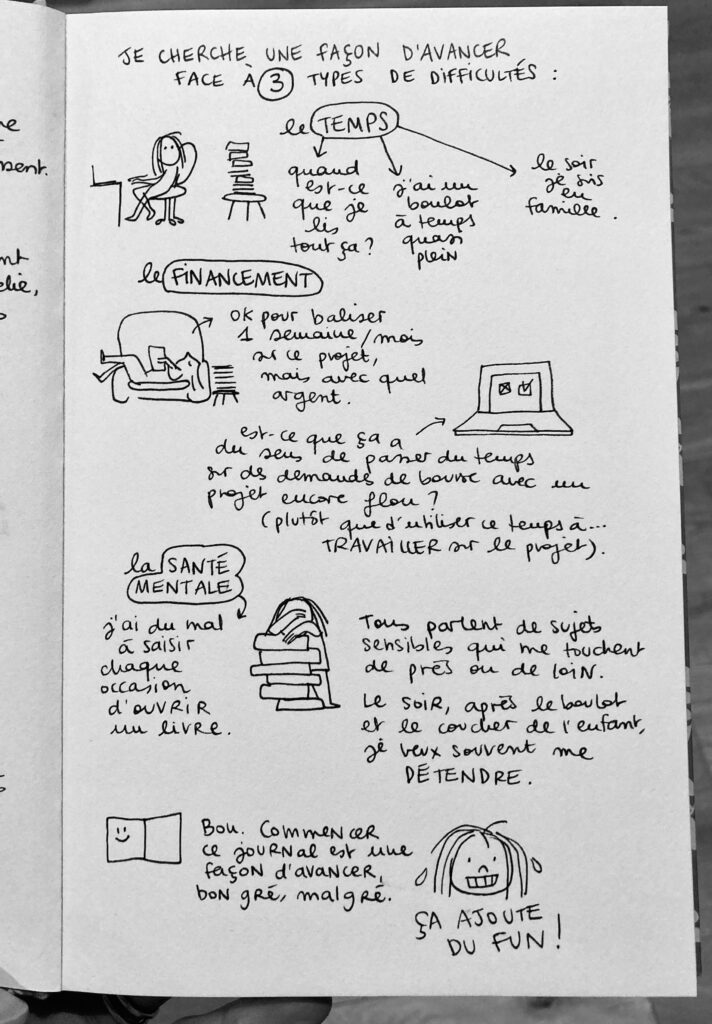 JE CHERCHE UNE FAÇON D'AVANCER
FACE À 3 TYPES DE DIFFICULTÉS :
le TEMPS
quand
est-ce
que je
lis
tout ça ?
j'ai un
boulot
à temps
quasi
plein
le soir
je suis
en
famille.
le FINANCEMENT
OK pour baliser
1 semaine/mois
sur ce projet,
mais avec quel
argent.
est-ce que ça a
du sens de passer du temps
sur des demandes de bourse avec un
projet encore flou ?
(plutôt que d'utiliser ce temps à...
TRAVAILLER sur le projet).
la SANTÉ
MENTALE
j'ai du mal
à saisir
chaque
occasion
d'OUVRIR
un LIVRE.
Tous parlent de sujets
sensibles qui me touchent
de près ou de loin.
Le SOIR, après le boulot
et le coucher de l'enfant,
je veux souvent me
DÉTENDRE.
Bon. Commencer
ce journal est une
façon d'avancer,
bon gré, malgré.
ÇA AJOUTE
DU FUN !